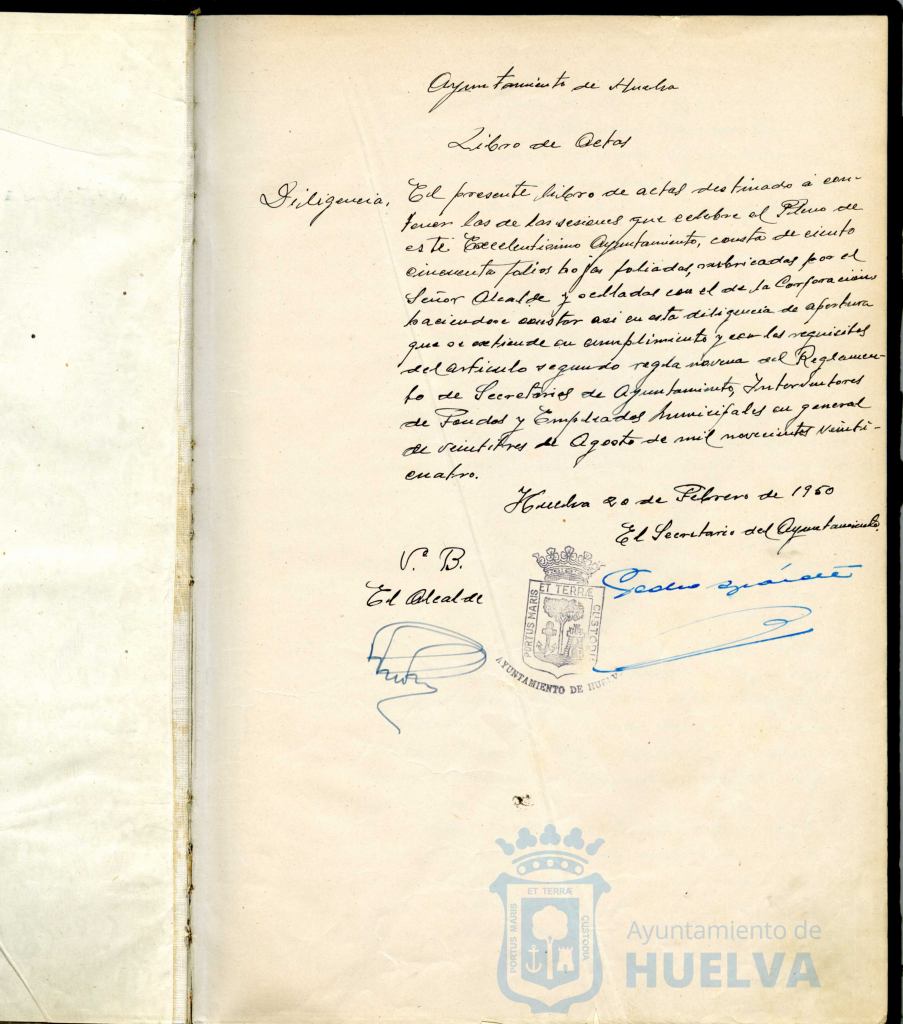 Ayuntamiento de Huelva
Libro de Actas
Diligencia, El presente libro de actas destinado á con-
tener las de las sesiones que celebre el Pleno de
este Excelentisimo Ayuntamiento, consta de ciento
cincuenta folios hojas foliadas, rubricadas por el
Señor Alcalde y selladas con el de la Corporación
haciendose constar asi en esta diligencia de apertura
que se extiende en cumplimiento y con los requisitos
del articulo segundo regla novena del Reglamen-
to de Secretarios de Ayuntamiento, Interventores
de Fondos y Empleados Municipales en general
de veintitres de Agosto de mil novecientos veinti-
cuatro.
Huelva 20 de Febrero de 1950
El Secretario del Ayuntamiento.
V.º B.
El Alcalde
Pedro
PORTUS MARIS ET TERRÆ CUSTODIA
AYUNTAMIENTO DE HUELVA
PORTUS MARIS ET TERRÆ CUSTODIA
Ayuntamiento de
HUELVA